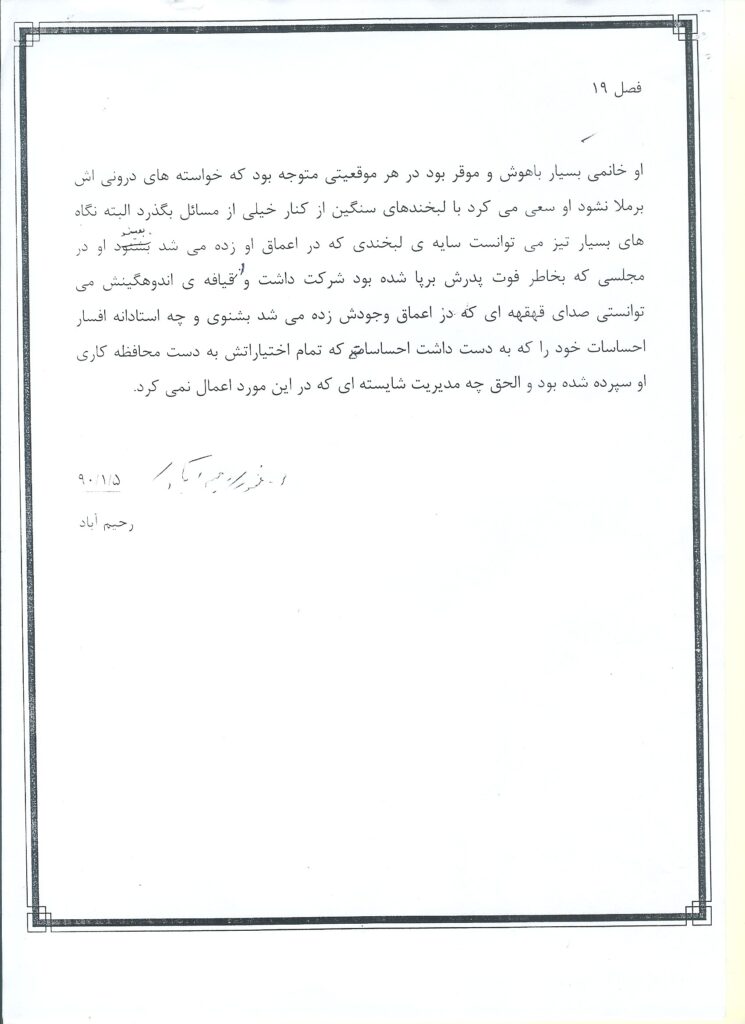 فصل ۱۹
او خانمی بسیار باهوش و موقر بود در هر موقعیتی متوجه بود که خواسته های درونی اش
برملا نشود او سعی می کرد با لبخندهای سنگین از کنار خیلی از مسائل بگذرد البته نگاه
های بسیار تیز می توانست سایه ی لبخندی که در اعماق او زده می شد بشنود او در
مجلسی که بخاطر فوت پدرش برپا شده بود شرکت داشت و از قیافه ی اندوهگینش می
توانستی صدای قهقهه ای که در اعماق وجودش زده می شد بشنوی و چه استادانه افسار
احساسات خود را که به دست داشت احساساتی که تمام اختیاراتش به دست محافظه کاری
او سپرده شده بود و الحق چه مدیریت شایسته ای که در این مورد اعمال نمی کرد.
۹۰/۱/۵
رحیم آباد